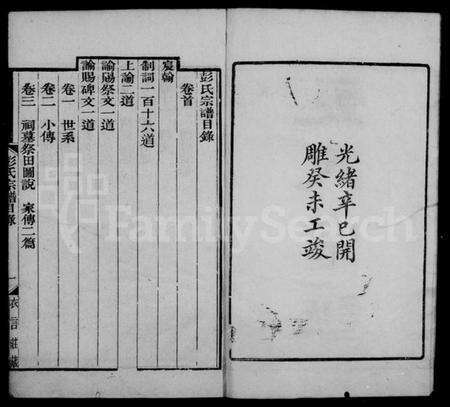 光緒辛巳開
雕癸未工竣
彭氏宗譜目錄
卷首
宸翰
制詞一百十六道
上諭二道
諭賜祭文一道
諭賜碑文一道
卷一 世系
卷二 小傳
卷三 祠墓祭田圖說 家傳二篇
彭氏宗譜目錄
一
FamilySearch